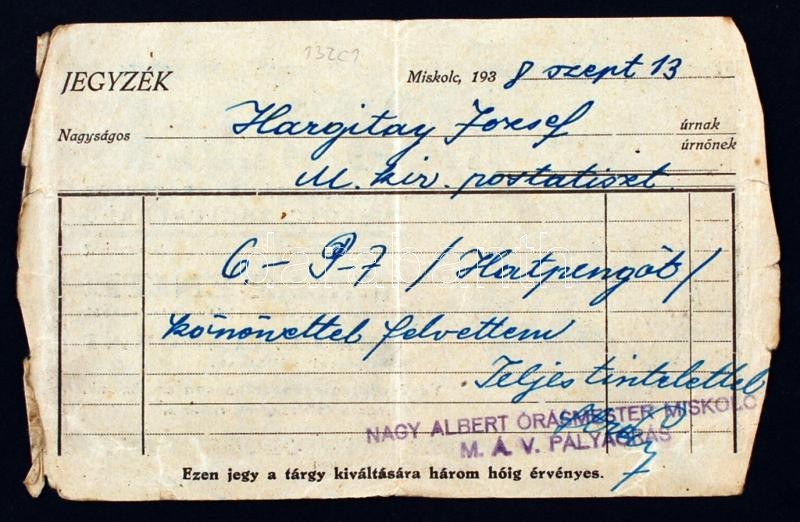 13201
JEGYZÉK
Miskolc, 1938 szept 13
Nagyságos Hargitay József úrnak
úrnőnek
M. kir. postatiszt.
6.- P-7 /Hatpengőt/
köszönettel felvettem
Teljes tisztelettel
NAGY ALBERT ÓRÁSMESTER MISKOLC
M. Á. V. PÁLYAÓRÁS
Ezen jegy a tárgy kiváltására három hóig érvényes.